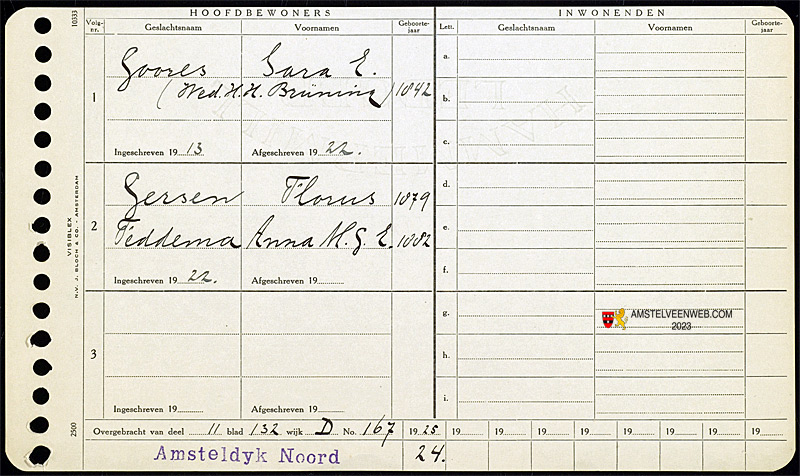 10333
HOOFDBEWONERS
INWONENDEN
Volg-nr. Geslachtsnaam Voornamen Geboorte-jaar Lett. Geslachtsnaam Voornamen Geboorte-jaar
1
Goores Sara E.
(Wed. H.H. Brüning) 1842
Ingeschreven 1913 Afgeschreven 1922.
2
Gersen Florus 1879
Feddema Anna M.G.E. 1882
Ingeschreven 1922. Afgeschreven 19
3
Ingeschreven 19 Afgeschreven 19
a.
b.
c.
d.
e.
f.
g.
h.
i.
AMSTELVEENWEB.COM
2023
VISIBLEX
N.V. J. BLOCH & CO. - AMSTERDAM
2500
Overgebracht van deel 11 blad 132 wijk D No. 167 1925 19 19 19 19 19 19 19 19
Amsteldyk Noord 24.